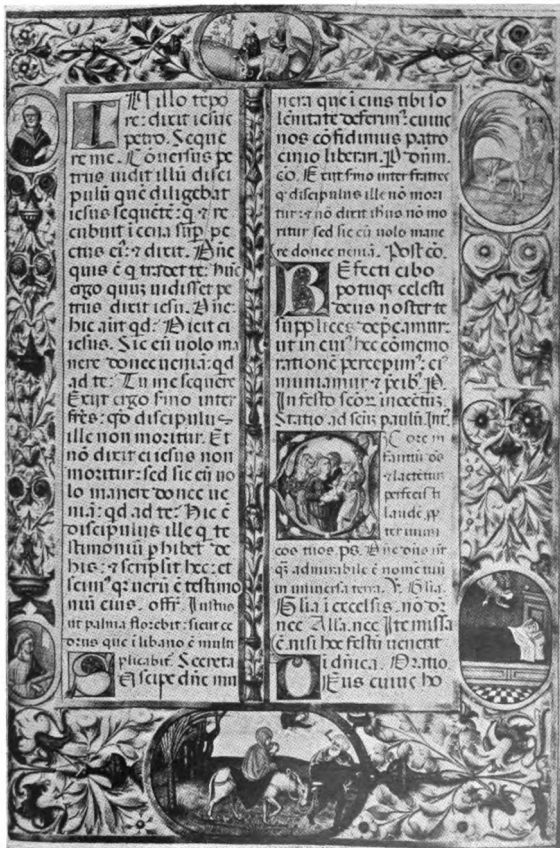 IN illo tēpo
re: dixit iesus
petro. Seque
re me. Cōuersus pe
trus uidit illū disci
pulū quē diligebat
iesus sequētē: q̄ ⁊ re
cubuit ī cena sup̄ pe
ctus ei⁹: ⁊ dixit. Dn̄e
quis ē q̄ tradet te: hūc
ergo quū uidisset pe
trus dixit iesu. Dn̄e:
hic aūt qd: Dicit ei
iesus. Sic eū uolo ma
nere donec ueniā: qd
ad te: Tu me sequere
Exiit ergo s̄mo inter
fr̄es: qō discipulus
ille non moritur. Et
nō dixit ei iesus non
moritur: sed sic eū uo
lo manere donec ue
niā: qd ad te: Hic ē
discipulus ille q̄ te
stimoniū p̄hibet de
his: ⁊ scripsit hec: et
scim⁹ q̄ uerū ē testimo
niū eius. offr̄. Iustus
ut palma florebit: sicut ce
drus que ī libano ē multi
plicabit̄. Secreta
Suscipe dn̄e mu
nera que ī eius tibi so
lēnitate deferim⁹: cuius
nos cōfidimus patro
cinio liberari. P. dn̄m.
cō. Exiit s̄mo inter fratres
q̄ discipulus ille nō mori
tur: ⁊ nō dixit ih̄us nō mo
ritur sed sic eū uolo mane
re donec ueniā. Post cō.
REfecti cibo
potuq̄ celesti
deus noster te
supplices dep̄camur:
ut in cui⁹ hec cōmemo
rationē percepim⁹: ei⁹
muniamur ⁊ p̄cib⁹. P.
In festo sctōr̄ inocētiū.
Statio ad sctū̄ paulū. Int̄.
EX ore in
fantiū de⁹
⁊ lactētiū
perfecisti
laudē, pp̄
ter inimi
cos tuos. ps. Dn̄e dn̄s nr̄
q̄ admirabile ē nomē tuū
in uniuersa terra. ℣. Gl̄ia.
Gl̄ia ī excelsis. nō dr̄
nec Alla. nec Ite missa
ē. nisi hoc festū uenerit
ī dn̄ica. Oratio
DEus cuius ho